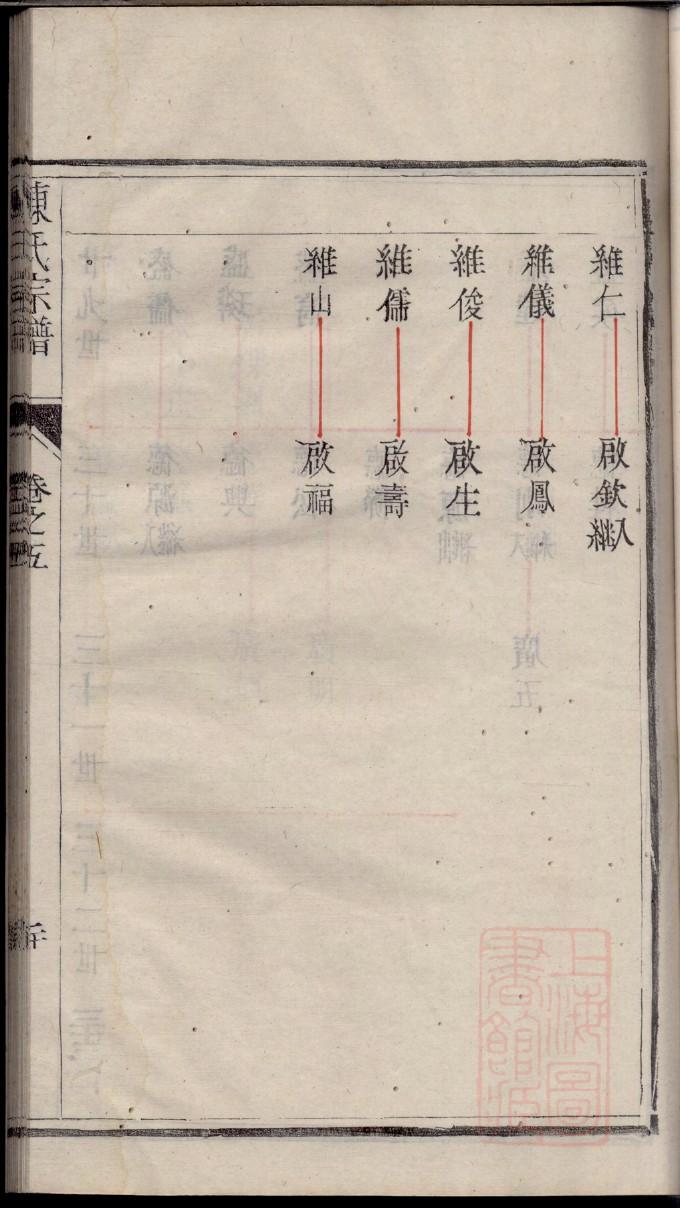 維仁 啟欽入繼
維儀 啟鳳
維俊 啟生
維儒 啟壽
維山 啟福
陳氏宗譜 卷之五
上海圖書館藏